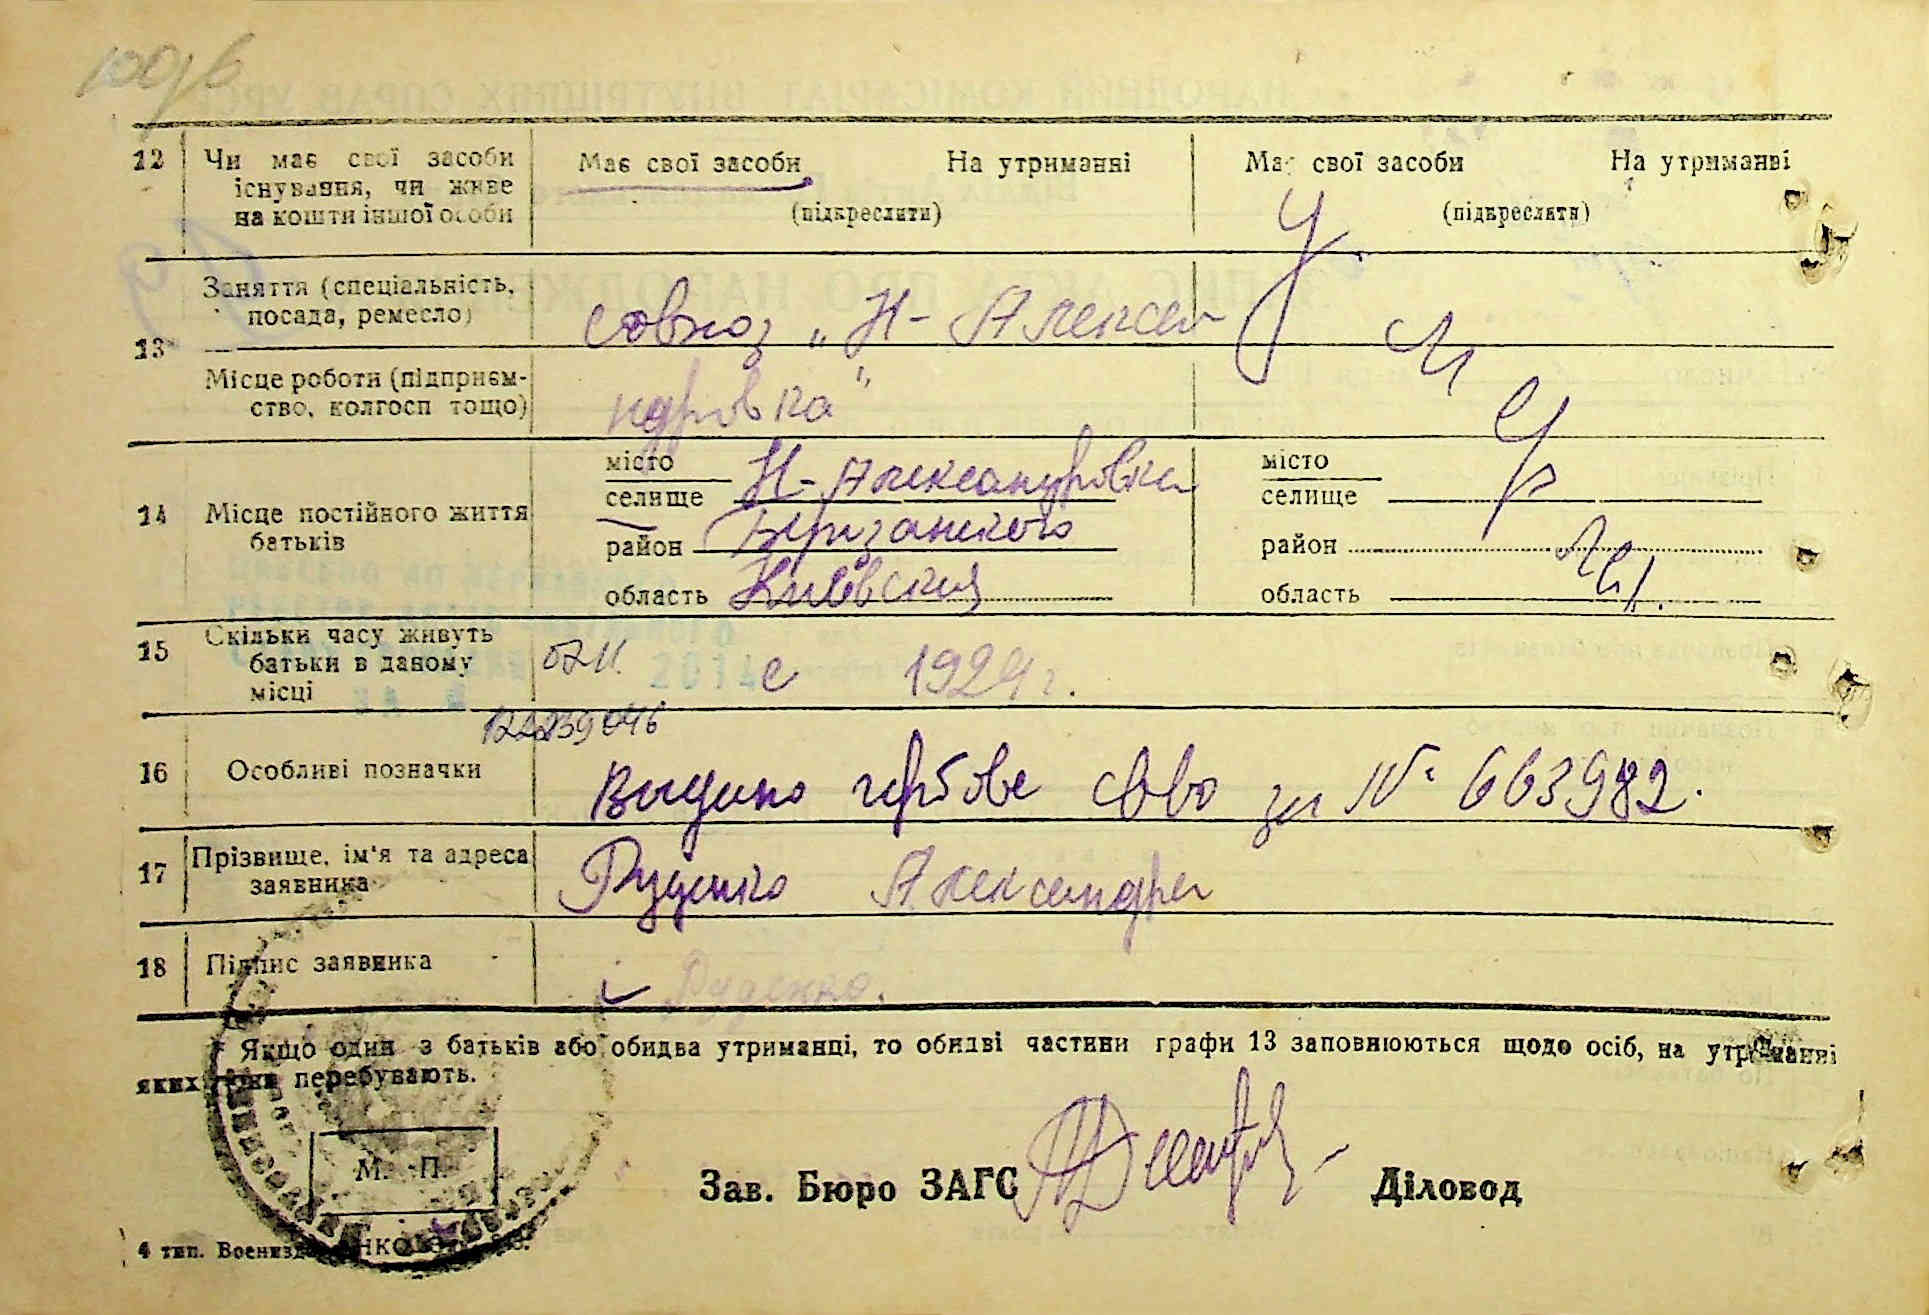 12 Чи має свої засоби існування, чи живе на кошти іншої особи
Має свої засоби На утриманні
(підкреслити)
Має свої засоби На утриманні
(підкреслити)
13 Заняття (спеціальність, посада, ремесло)
совхоз „Н-Алексан
Місце роботи (підприємство, колгосп тощо)
дровка"
14 Місце постійного життя батьків
місто
селище Н-Александровка
район Березанского
область Киевская
місто
селище
район
область
15 Скільки часу живуть батьки в даному місці
с 1929 г.
2014
12239046
16 Особливі позначки
Видано гербове св-во за № 663982.
17 Прізвище, ім'я та адреса заявника
Руденко Александра
18 Підпис заявника
Руденко.
Якщо один з батьків або обидва утриманці, то обидві частини графи 13 заповнюються щодо осіб, на утриманні
яких вони перебувають.
М. П.
Зав. Бюро ЗАГС
Діловод
4 тип. Воениздата НКО